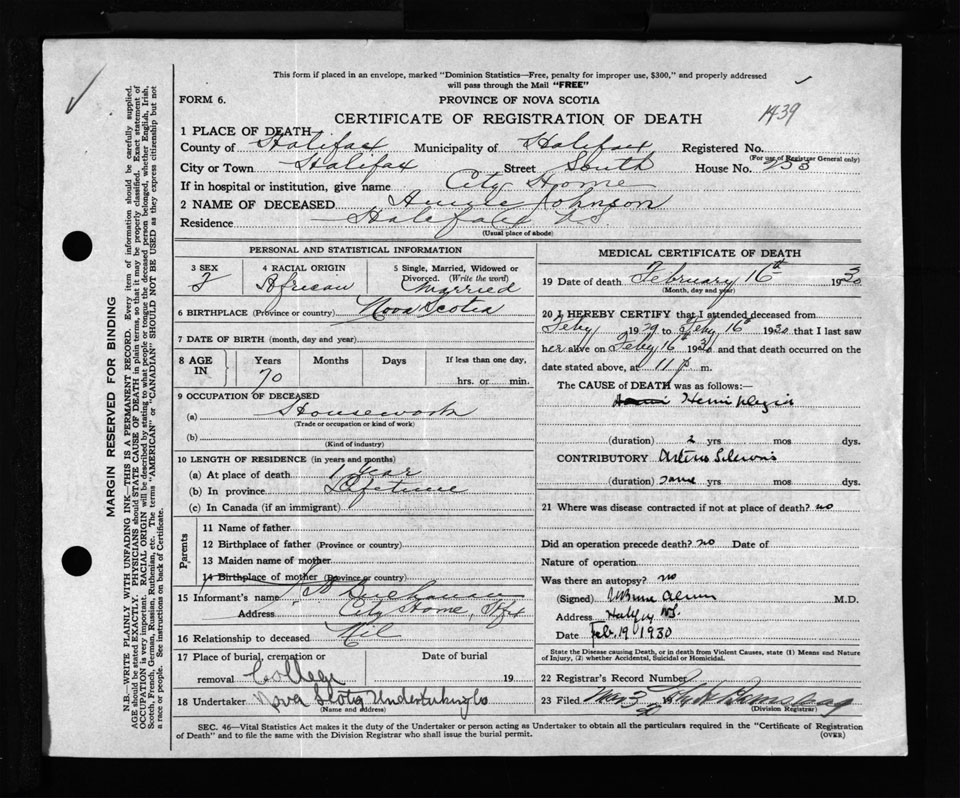 This form if placed in an envelope, marked "Dominion Statistics—Free, penalty for improper use, $300," and properly addressed
will pass through the Mail "FREE"
FORM 6.
PROVINCE OF NOVA SCOTIA
1439
CERTIFICATE OF REGISTRATION OF DEATH
1 PLACE OF DEATH
County of Halifax Municipality of Halifax Registered No.
(For use of Registrar General only)
City or Town Halifax Street South House No. 253
If in hospital or institution, give name City Home
2 NAME OF DECEASED Annie Johnson
Residence Halifax N.S.
(Usual place of abode)
PERSONAL AND STATISTICAL INFORMATION
3 SEX F
4 RACIAL ORIGIN African
5 Single, Married, Widowed or Divorced. (Write the word) Married
6 BIRTHPLACE (Province or country) Nova Scotia
7 DATE OF BIRTH (month, day and year)
8 AGE IN Years Months Days If less than one day,
70 hrs. or min.
9 OCCUPATION OF DECEASED
(a) Housework
(Trade or occupation or kind of work)
(b)
(Kind of industry)
10 LENGTH OF RESIDENCE (in years and months)
(a) At place of death 1 Year
(b) In province Lifetime
(c) In Canada (if an immigrant)
Parents
11 Name of father
12 Birthplace of father (Province or country)
13 Maiden name of mother
14 Birthplace of mother (Province or country)
15 Informant's name Buchanan
Address City Home, Hfx
16 Relationship to deceased Nil
17 Place of burial, cremation or Date of burial
removal College 19
18 Undertaker Nova Scotia Undertaking Co
(Name and address)
MEDICAL CERTIFICATE OF DEATH
19 Date of death February 16th 1930
(Month, day and year)
20 I HEREBY CERTIFY that I attended deceased from
Feby 1929 to Feby 16th 1930 that I last saw
her alive on Feby 16th 1930 and that death occurred on the
date stated above, at 11 p m.
The CAUSE of DEATH was as follows:—
Hemiplegia
(duration) 2 yrs mos dys.
CONTRIBUTORY Arterio Sclerosis
(duration) Same yrs mos dys.
21 Where was disease contracted if not at place of death? no
Did an operation precede death? no Date of
Nature of operation
Was there an autopsy? no
(Signed) M.D.
Address Halifax NS.
Date Feb. 19 1930
State the Disease causing Death, or in death from Violent Causes, state (1) Means and Nature
of Injury, (2) whether Accidental, Suicidal or Homicidal.
22 Registrar's Record Number
23 Filed Mar 3 19
(Division Registrar)
SEC. 46—Vital Statistics Act makes it the duty of the Undertaker or person acting as Undertaker to obtain all the particulars required in the "Certificate of Registration
of Death" and to file the same with the Division Registrar who shall issue the burial permit.
(OVER)
MARGIN RESERVED FOR BINDING
N.B.—WRITE PLAINLY WITH UNFADING INK—THIS IS A PERMANENT RECORD. Every item of information should be carefully supplied.
AGE should be stated EXACTLY. PHYSICIANS should STATE CAUSE OF DEATH in plain terms, so that it may be properly classified. Exact statement of
OCCUPATION is very important. RACIAL ORIGIN will be described by stating to what people or tongue the deceased person belonged, whether English, Irish,
Scotch, French, German, Russian, Ruthenian, etc. The terms "AMERICAN" or "CANADIAN" SHOULD NOT BE USED as they express citizenship but not
a race or people. See instructions on back of Certificate.